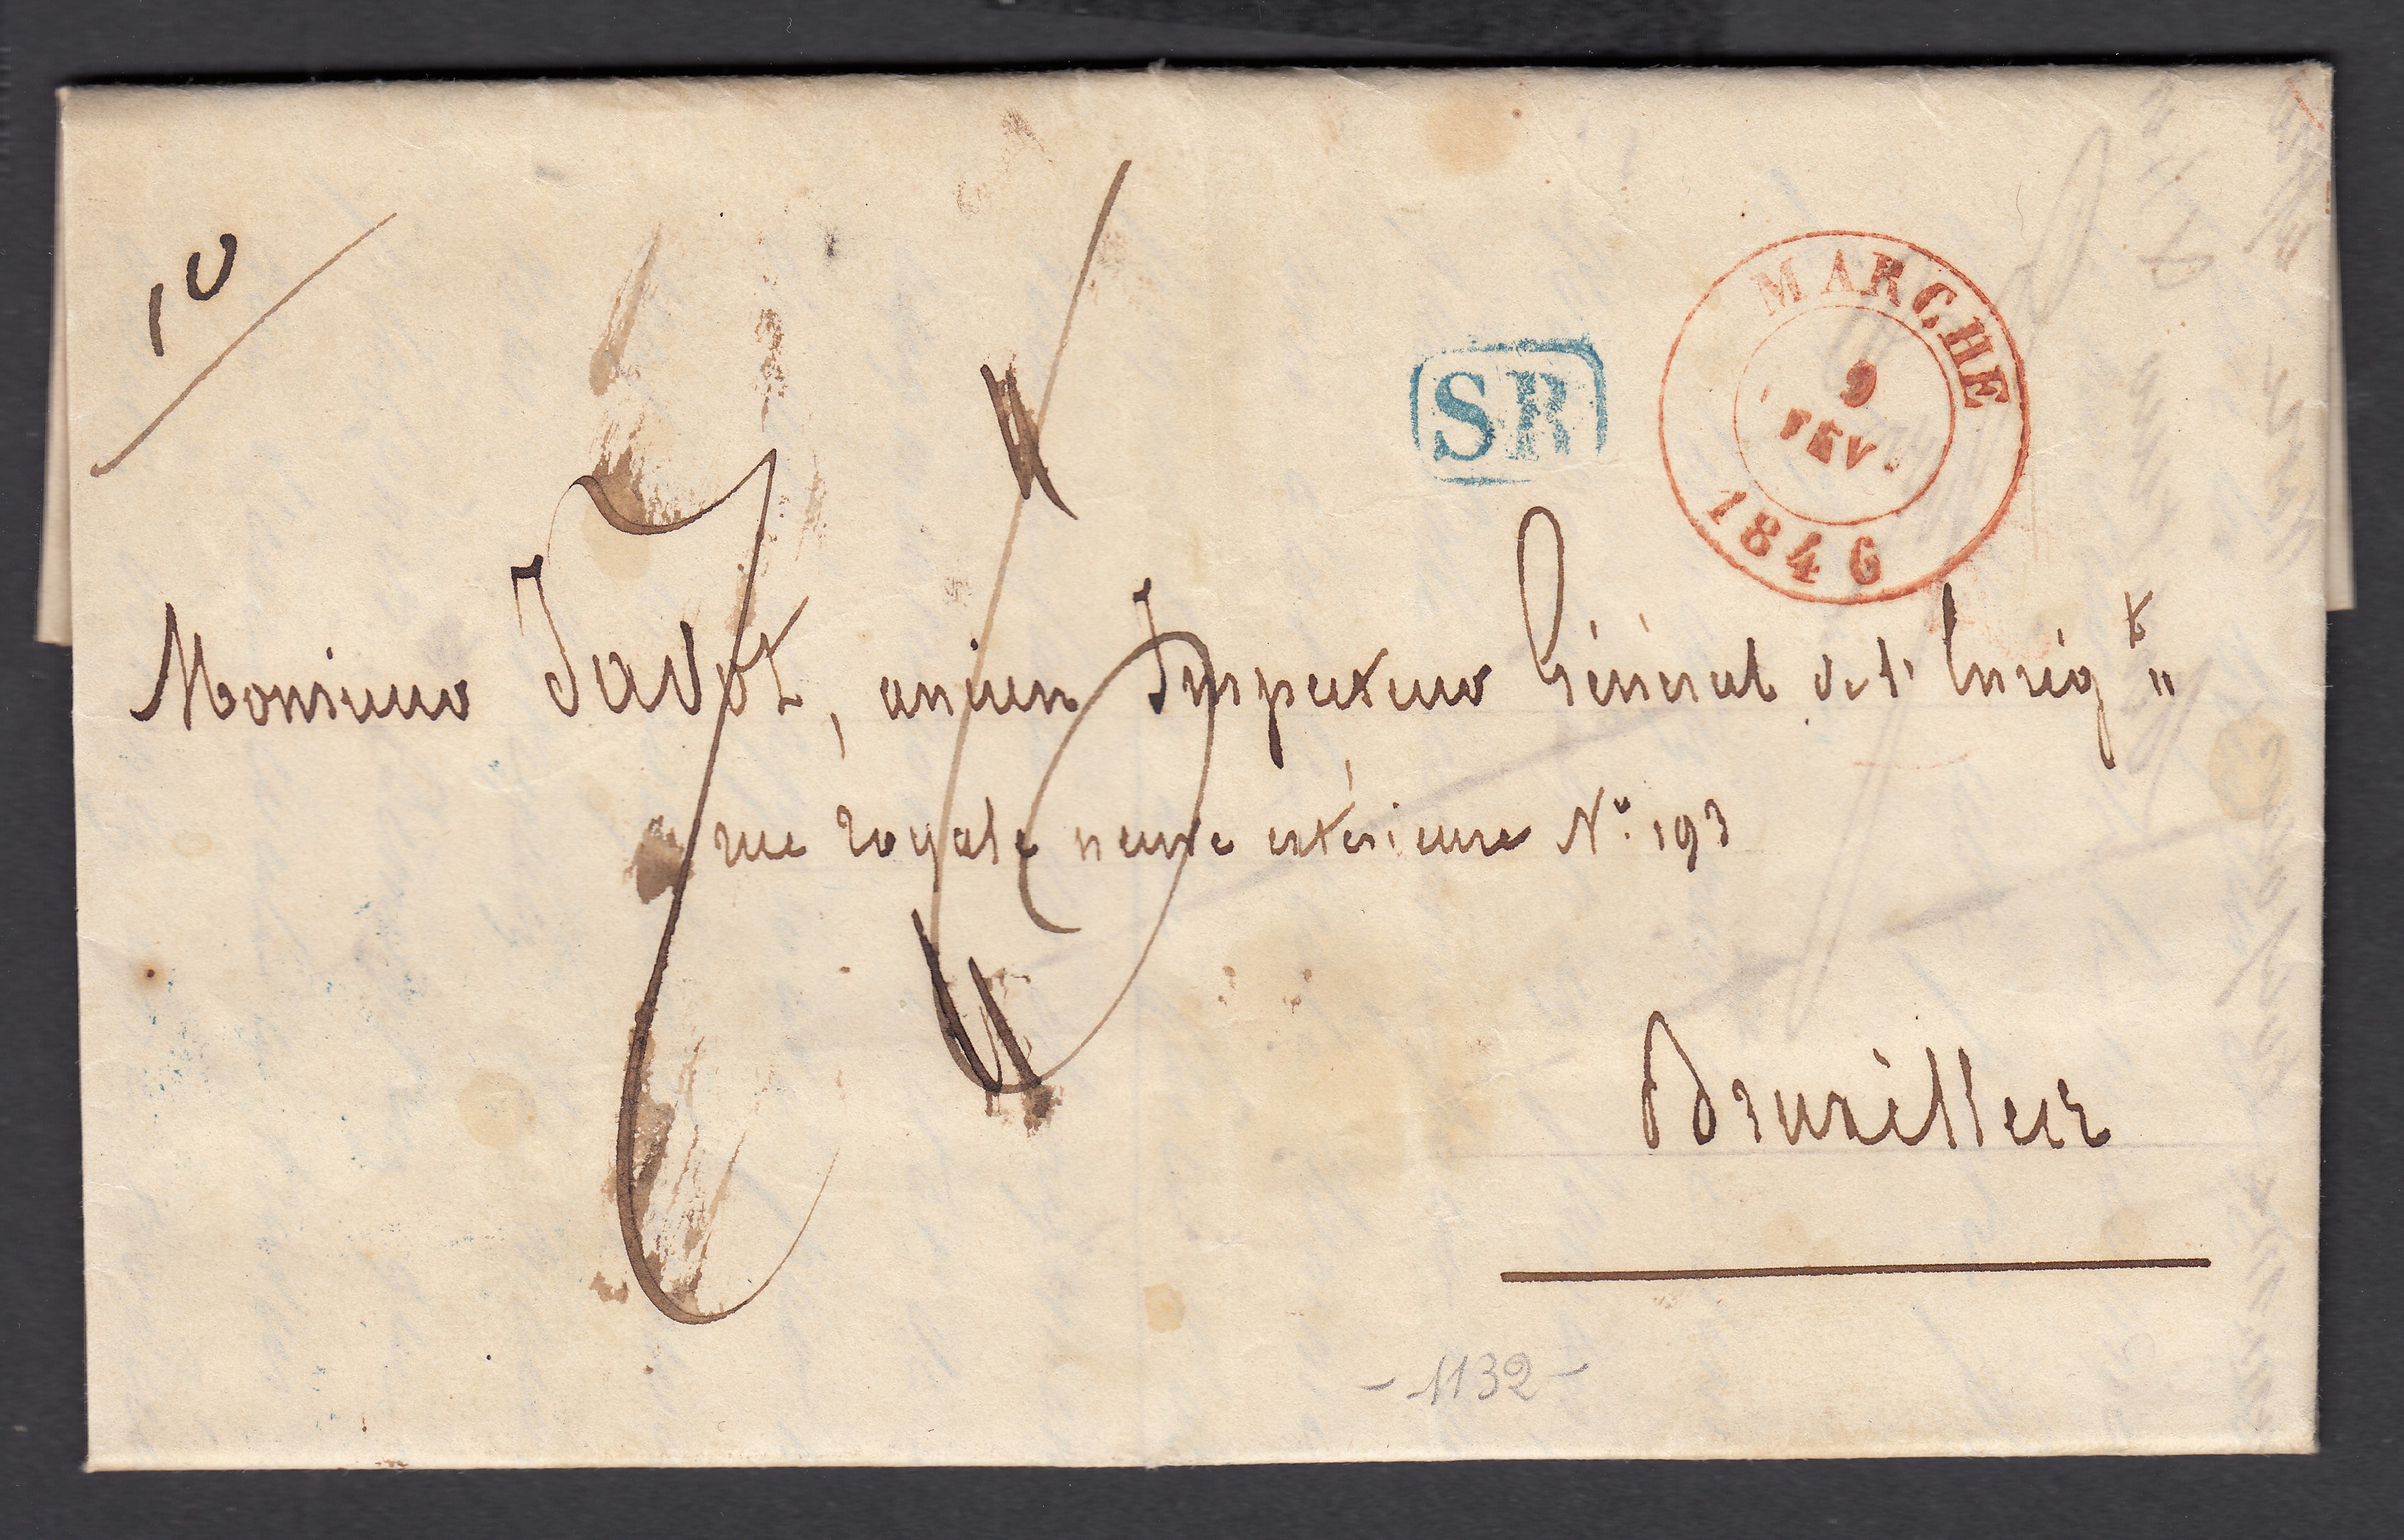 10
MARCHE
9
FEV.
1846
SR
6
Monsieur Javot, ancien Inspecteur Général de l'Enregt
rue royale neuve extérieure No. 193
Bruxelles
- 1132 -